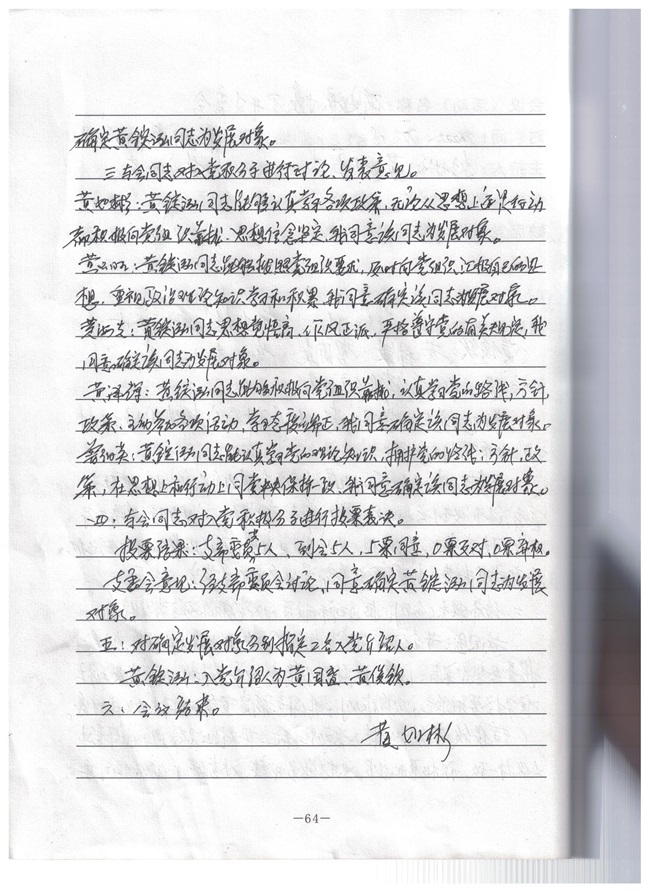 确定黄铁泓同志为发展对象。
三、与会同志对入党积极分子进行讨论、发表意见。
黄如彬：黄铁泓同志能够认真学习各项政策，无论从思想上还是行动
都积极向党组织靠拢、思想信念坚定，我同意该同志为发展对象。
黄：黄铁泓同志能够按照党组织要求，及时向党组织汇报自己的思
想，重视政治理论知识学习和积累，我同意确定该同志为发展对象。
黄：黄铁泓同志思想觉悟高、作风正派，严格遵守党的有关规定，我
同意确定该同志为发展对象。
黄泽锋：黄铁泓同志能够积极向党组织靠拢，认真学习党的路线，方针，
政策、主动参加各项活动，学习态度端正，我同意确定该同志为发展对象。
：黄铁泓同志能认真学习党的理论知识，拥护党的路线，方针，政
策，在思想上和行动上同党中央保持一致，我同意确定该同志为发展对象。
四、与会同志对入党积极分子进行投票表决。
投票结果：支部委员5人，到会5人，5票同意，0票反对，0票弃权。
支委会意见：经支部委员会讨论，同意确定黄铁泓同志为发展
对象。
五、对确定发展对象分别指定2名入党介绍人。
黄铁泓：入党介绍人为黄国、黄俊钦。
六、会议结束。
黄如彬
—64—